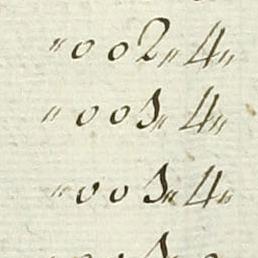 "002"4"
"003"4"
"003"4"